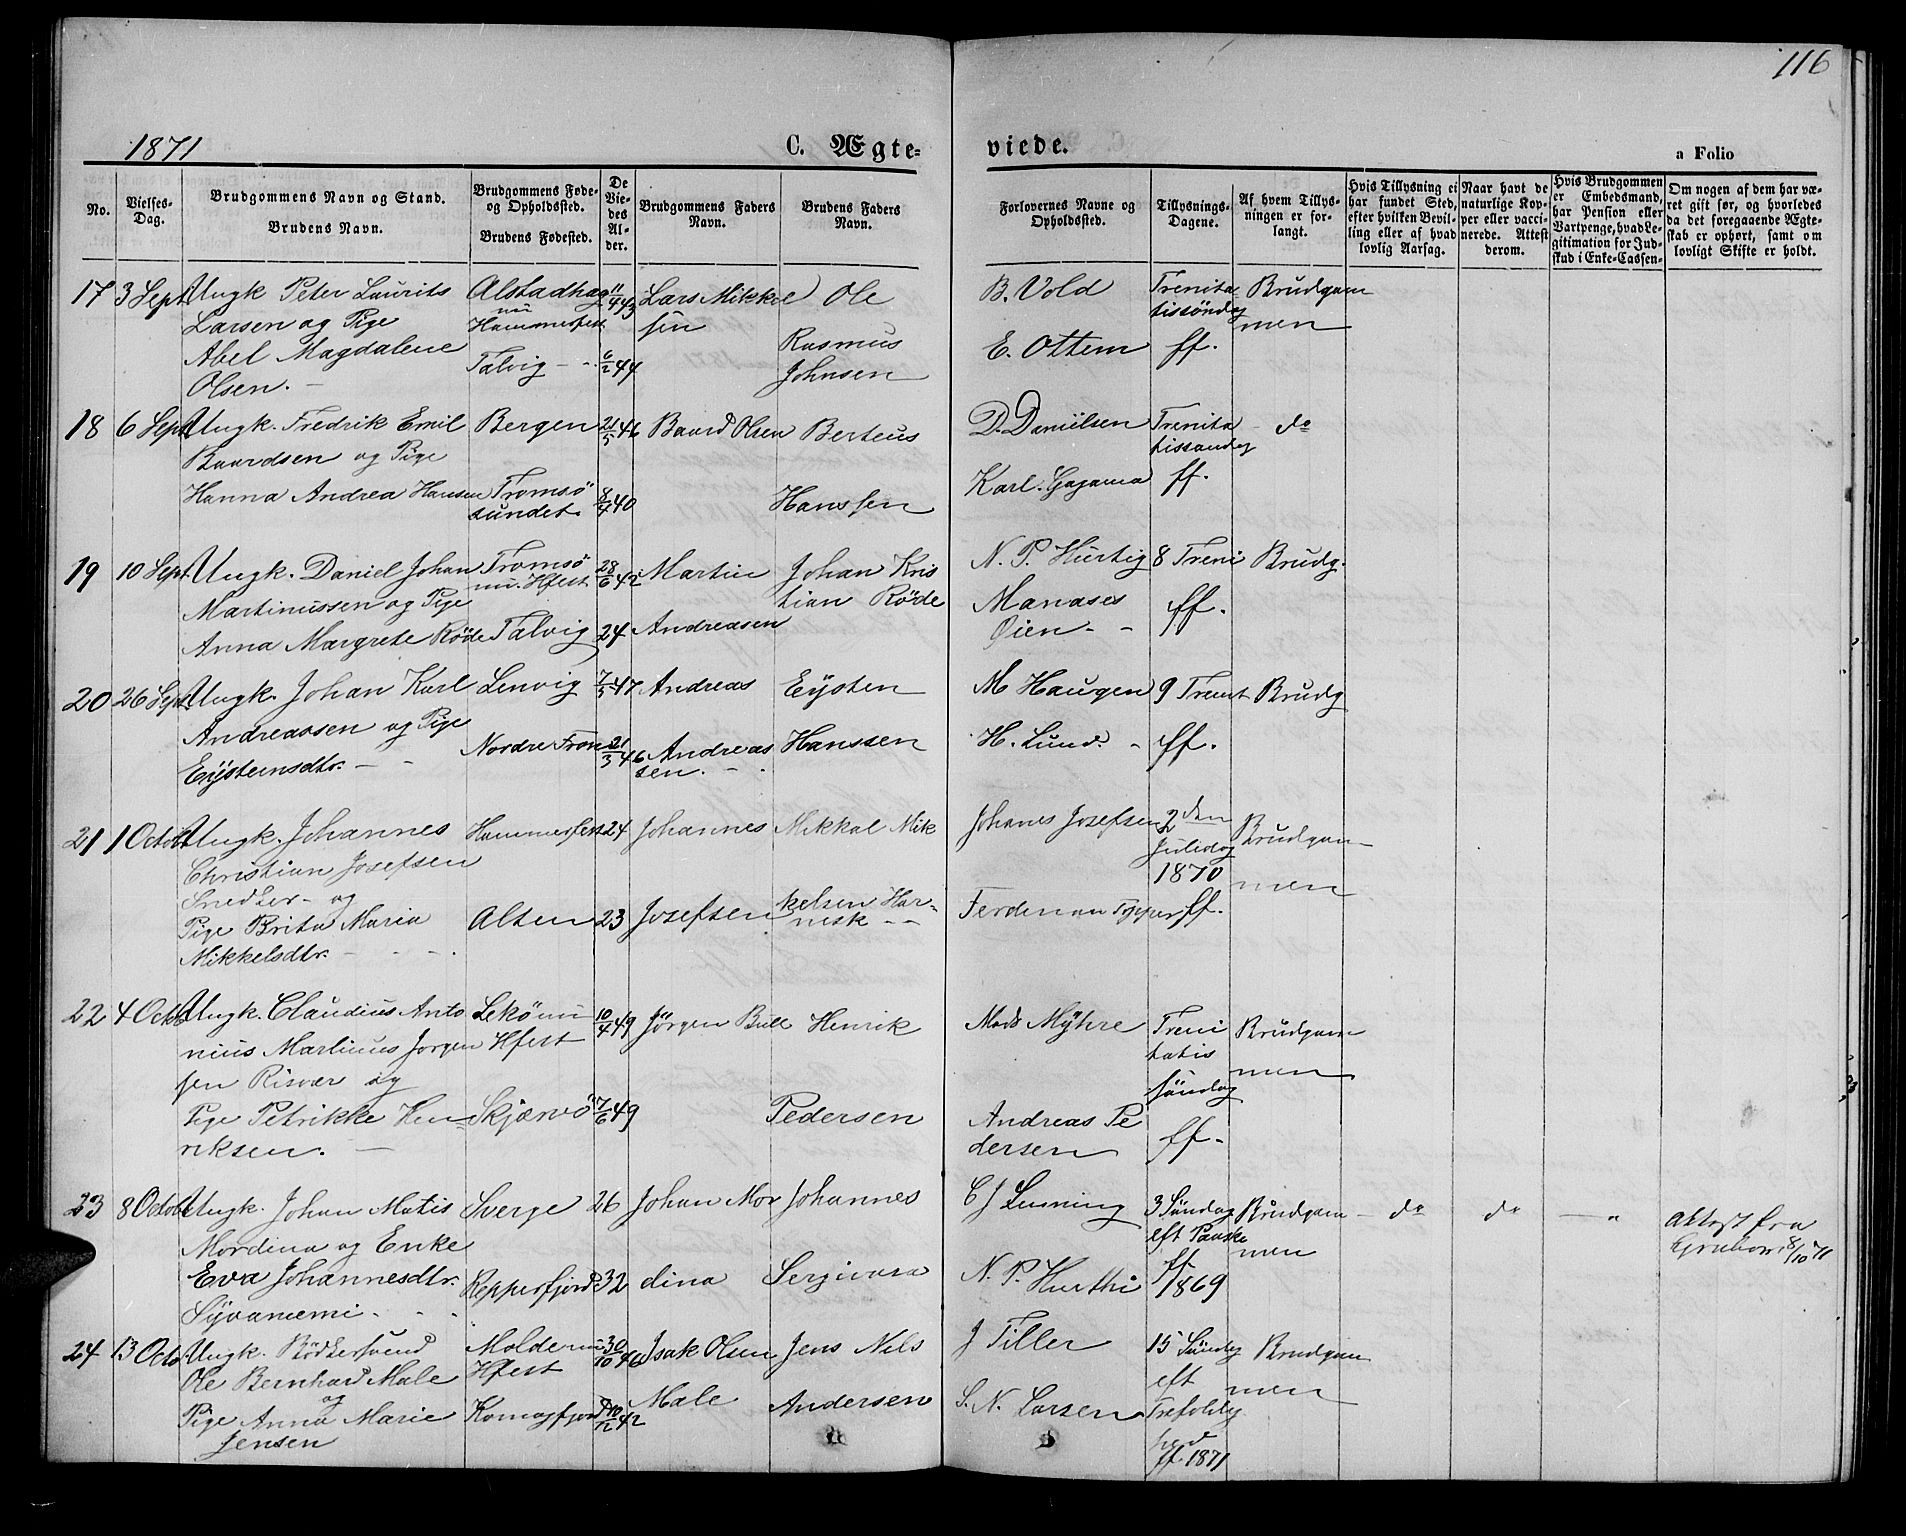 116
1871
C. Ægte-
viede.
a Folio
No.
Vielses-
Dag.
Brudgommens Navn og Stand.
Brudens Navn.
Brudgommens Føde-
og Opholdssted.
Brudens Fødested.
De
Vie-
des
Al-
der.
Brudgommens Faders
Navn.
Brudens Faders
Navn.
Forlovernes Navne og
Opholdssted.
Tillysnings-
Dagene.
Af hvem Tillys-
ningen er for-
langt.
Hvis Tillysning ei
har fundet Sted,
efter hvilken Bevil-
ling eller af hvad
lovlig Aarsag.
Naar havt de
naturlige Kop-
per eller vacci-
nerede. Attest
derom.
Hvis Brudgommen
er Embedsmand,
har Pension eller
Vartpenge, hvad Le-
gitimation for Ind-
skud i Enke-Cassen-
Om nogen af dem har væ-
ret gift før, og hvorledes
da det foregaaende Ægte-
skab er ophørt, samt om
lovligt Skifte er holdt.
17 3 Sept Ungk Peter Laurits
Larsen og Pige
Abel Magdalene
Olsen.
Alstadhag
nu
Hammerfest
Talvig
6/2 44
Lars Mikkel
sen
Ole
Rasmus
Johnsen
B. Vold
E. Ottem
Trenita
tissöndag
ff.
Brudgam
men
18 6 Sept Ungk. Fredrik Emil
Baardsen og Pige
Hanna Andrea Hansen
Bergen
Tromsö
sundet.
21/5 46
8/4 40
Baard Olsen
Berteus
Hanssen
D. Danielsen
Karl.
Trenita
tissondag
ff.
do
19 10 Sept Ungk. Daniel Johan
Martinussen og Pige
Anna Margrete Röde
Tromsö
nu. Hfest
Talvig
28/6 42
24
Martin
Andreasen
Johan Kris
tian Röde
N. P. Hurtig
Manases
Öien
8 Treni
ff.
Brudg.
20 26 Sept Ungk. Johan Karl
Andreassen og Pige
Eystensdtr.
Lenvig
Nordre Fron
7/5 47
21/3 46
Andreas
Andreas
sen.
Eysten
Hanssen
M Haugen
H. Lund.
9 Trenit
ff.
Brudg
21 1 Octob Ungk. Johannes
Christian Josefsen
Snedker og
Pige Brita Maria
Mikkelsdtr.
Hammerfest
Alten
24
23
Johannes
Josefsen
Mikkal Mik
kelsen Har-
nesk
Johanes Josefsen
Ferdenan
2 den
Juledag
1870
ff.
Brudgam
men
22 4 Octob Ungk. Claudius Anto
nius Martinus Jorgen
sen Risvær og
Pige Petrikke Hen-
riksen.
Lekö nu
Hfest
Skjærvö
10/4 49
7/6 49
Jörgen Bull
Henrik
Pedersen
Mads Myhre
Andreas Pe
dersen
Treni
tatis
söndag
ff.
Brudgam
men
23 8 Octob Ungk. Johan Matis
Mordina og Enke
Eva Johannesdtr.
Syvaniemi
Sverge
Repperfjord
26
32
Johan Mor
dina
Johannes
Serjivara
C J Lenning
N. P. Hurthi
3 Söndag
eft Paaske
ff.
1869
Brudgam
men
do
do
"
Attest fra
8/10 71
24 13 Octo Ungk. Bödkersvend
Ole Bernhard Male
og
Pige Anna Marie
Jensen
Molde nu
Hfest
Komagfjord
30/10 46
10/12 42
Isak Olsen
Male
Jens Nils
Andersen
J Tiller
S. N. Larsen
15 Söndag
eft
Trefoldig
hed
ff 1871
Brudgam
men